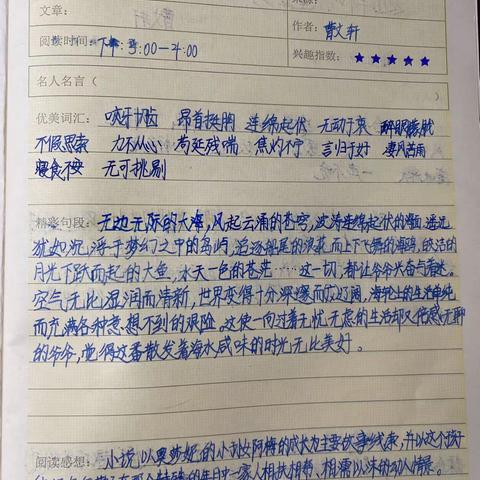 文章：
作者：曹文轩
阅读时间：下午：3:00—4:00
兴趣指数：★★★★★
名人名言（
优美词汇： 呲牙 昂首挺胸 连绵起伏 无动于衷 醉眼朦胧
不假思索 力不从心 苟延残喘 焦灼不宁 言归于好 凄风苦雨
寝食不安 无可挑剔
精彩句段：无边无际的大海，风起云涌的苍穹，波涛连绵起伏的海面，
犹如沉浮于梦幻之中的岛屿，追逐船尾的浪花而上下飞舞的海鸥，皎洁的
月光下跃而起的大鱼，水天一色的苍茫……这一切，都让爷爷兴奋与着迷。
空气无比湿润而清新，世界变得十分深邃而广辽阔，海轮上的生活单纯
而充满各种意想不到的艰险。这使一向过着无忧无虑的生活却又倦感无聊
的爷爷，觉得这番散发着海水咸味的时光无比美好。
阅读感想：小说以奥莎妮的小孙女阿梅的成长为主要故事线索，并以这个孩子
一家人相扶相帮、相濡以沫的动人情景。